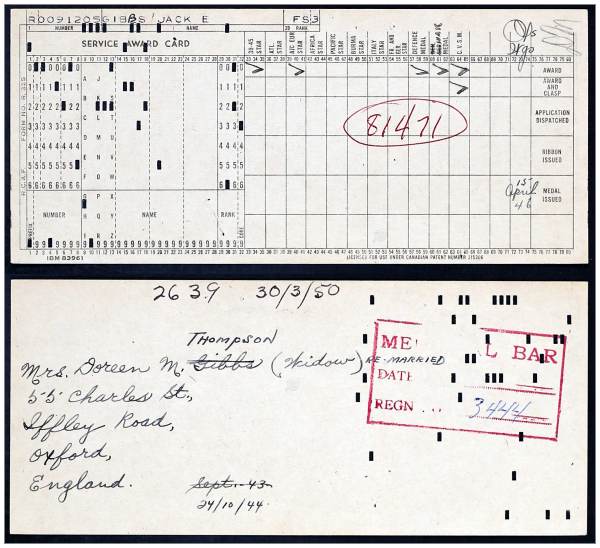 R0091205GIBBS JACK E FS3
1 NUMBER 10 NAME 29 RANK
SERVICE AWARD CARD
39-45 STAR
ATL. STAR
AIC EUR STAR
AFRICA STAR
PACIFIC STAR
BURMA STAR
ITALY STAR
FR AND GER. STAR
DEFENCE MEDAL
MEDAL
C.V.S.M.
O/s
AWARD
AWARD AND CLASP
APPLICATION DISPATCHED
RIBBON ISSUED
MEDAL ISSUED
81471
1st April 46
R.C.A.F. FORM NO. R.335
NUMBER NAME RANK
IBM 83961
LICENSED FOR USE UNDER CANADIAN PATENT NUMBER 315306
2639 30/3/50
THOMPSON
Mrs. Doreen M. Gibbs (Widow) RE-MARRIED
55 Charles St.,
Iffley Road,
Oxford,
England.
Sept. 43
24/10/44.
BAR
DATE
REGN
3444